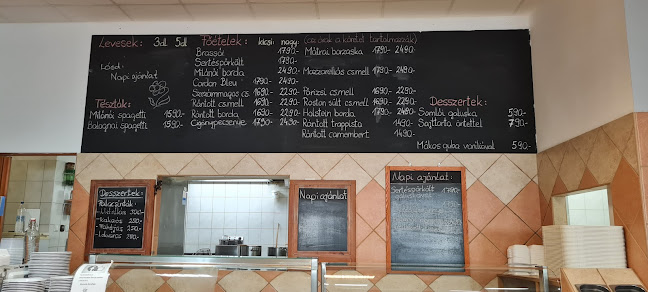 Levesek: 3dl 5dl
Lásd:
Napi ajánlat
Tészták:
Milánói spagetti 1590.-
Bolognai spagetti 1590.-
Főételek: kicsi nagy: (az árak a köretet tartalmazzák)
Brassói 1790.-
Sertéspörkölt 1790.-
Milánói borda 2490.-
Cordon Bleu 1790.- 2490.-
Szezámmagos cs. 1690.- 2290.-
Rántott csmell 1690.- 2290.-
Rántott borda 1690.- 2290.-
Cigánypecsenye 1790.- 2490.-
Mátrai borzaska 1790.- 2490.-
Mozzarellás csmell 1790.- 2490.-
Párizsi csmell 1690.- 2290.-
Roston sült csmell 1690.- 2290.-
Holstein borda 1790.- 2490.-
Rántott trappista 1490.-
Rántott camembert 1490.-
Desszertek:
Somlói galuska 590.-
Sajttorta öntettel 790.-
Mákos guba vaníliával 590.-
Desszertek:
Palacsinták:
Napi ajánlat
Napi ajánlat:
Sertéspörkölt